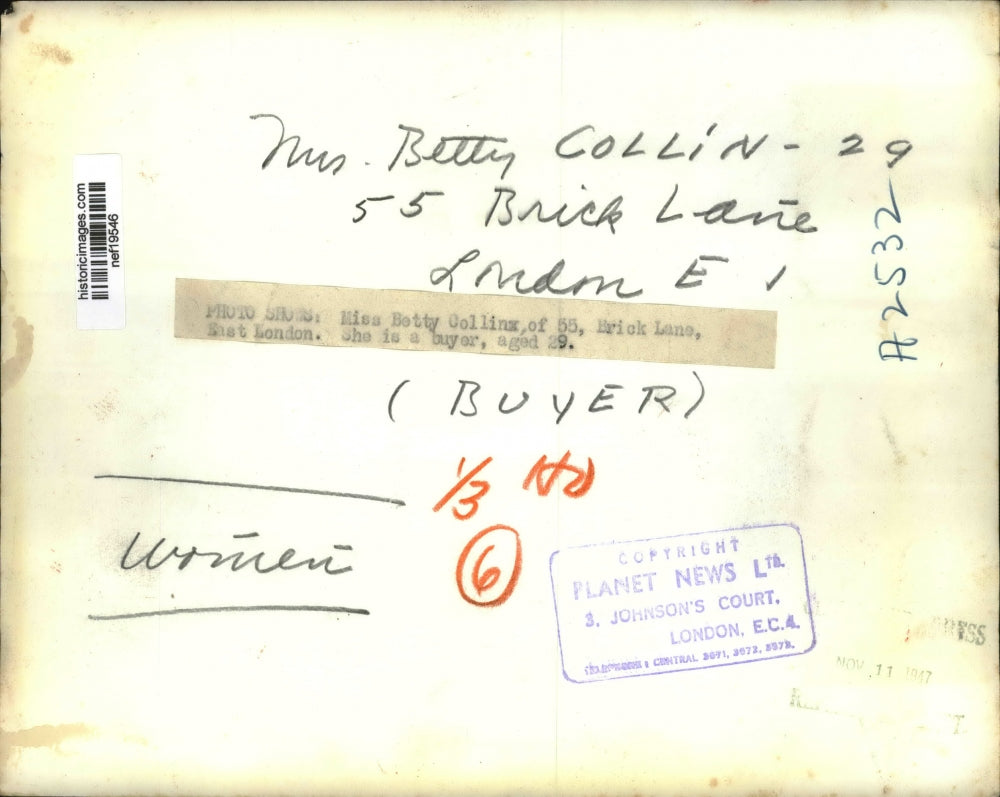 Mrs. Betty COLLIN - 29
55 Brick Lane
London E 1
historicimages.com
nef19546
A2532
PHOTO SHOWS: Miss Betty Collinx,of 55, Brick Lane,
East London. She is a buyer, aged 29.
(BUYER)
1/3 HD
6
Women
COPYRIGHT
PLANET NEWS LTD.
3, JOHNSON'S COURT,
LONDON, E.C.4.
CENTRAL 3071, 3072, 3073.
NOV 11 1947